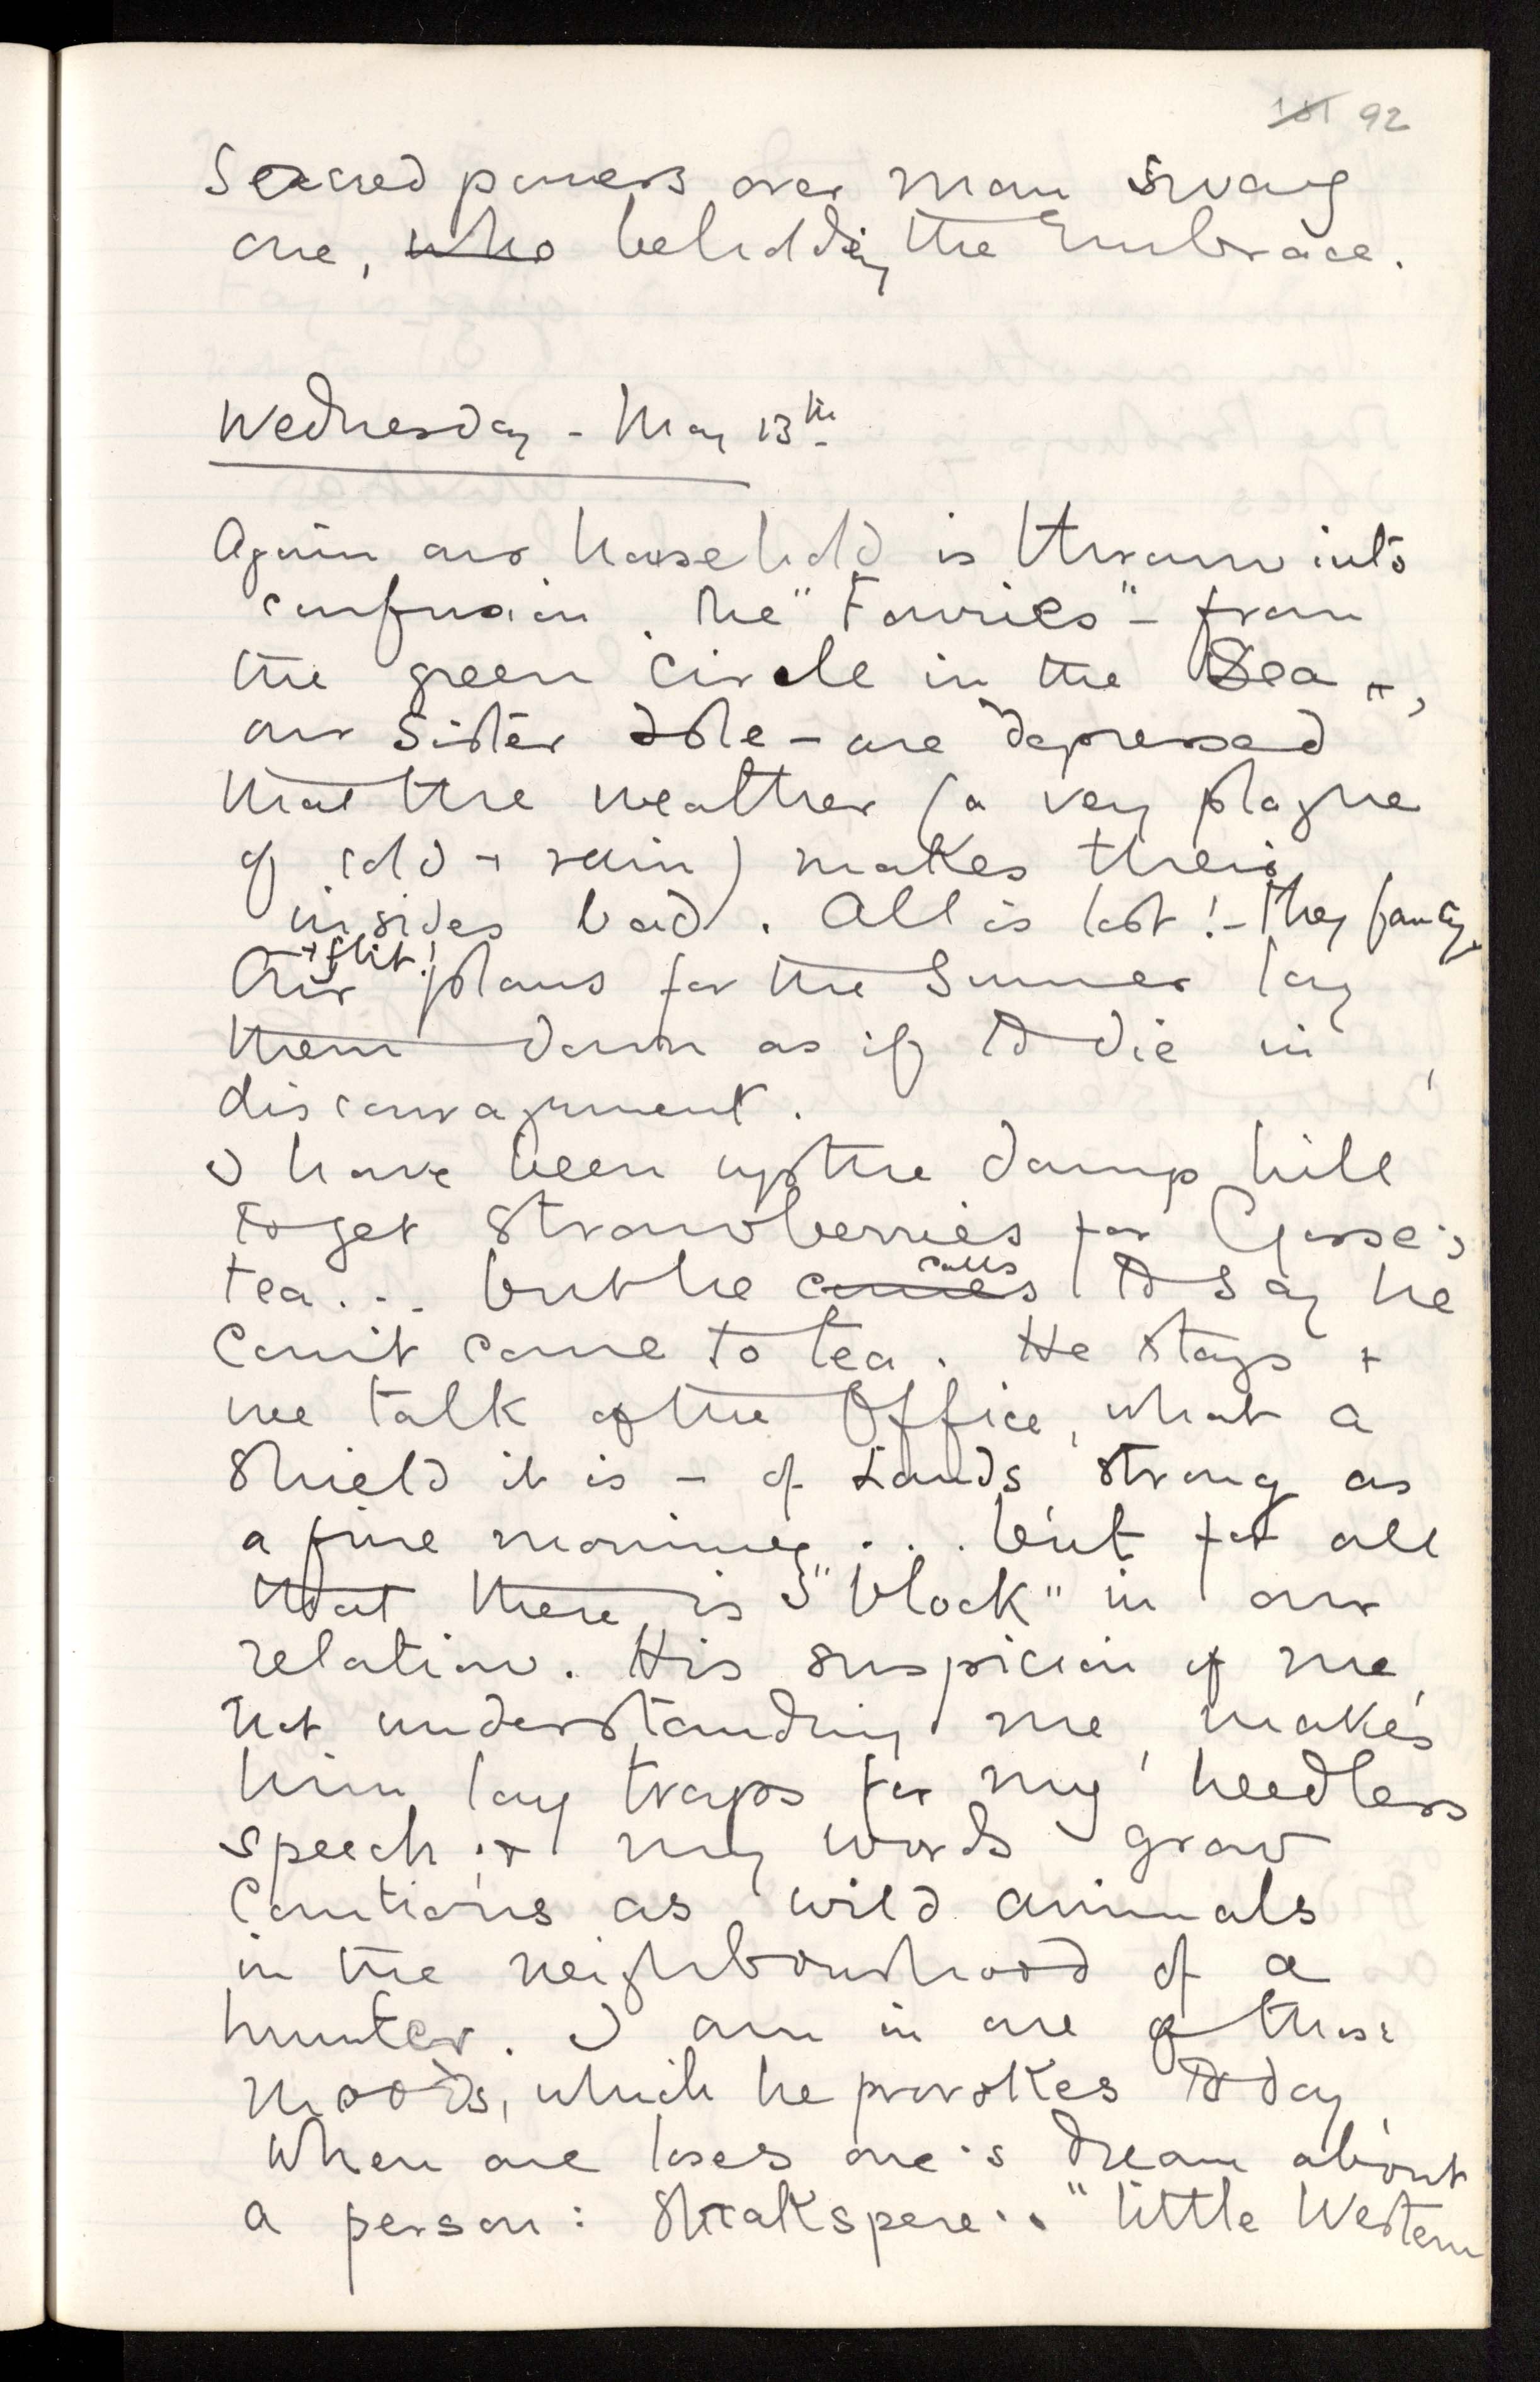 181 92
Sacred powers over man swang
one, who beholding the Embrace.
Wednesday - May 13th
Again our household is thrown into
confusion. The "Fowries" - from
the green circle in the Sea +,
our Sister Isle - are depressed
that the weather (a very plague
of cold + rain) makes their
insides bad. All is lost! - they fancy
+ flit!
Our plans for the Summer lay
them down as if to die in
discouragment.
I have been up the damp hill
to get strawberries for Gosse's
calls
tea... but he comes to say he
can't come to tea. He stays +
we talk of the Office, what a
Shield it is - of Lands strong as
a fine morning... but for all
that there is "block" in our
relation. His suspicion of me,
not understanding me, makes
him lay traps for my heedless
speech + my words grow
Cautious as wild animals
in the neighbourhood of a
hunter. I am in one of those
moods, which he provokes today,
When one loses one's dream about
a person: Shakspere's "little Western